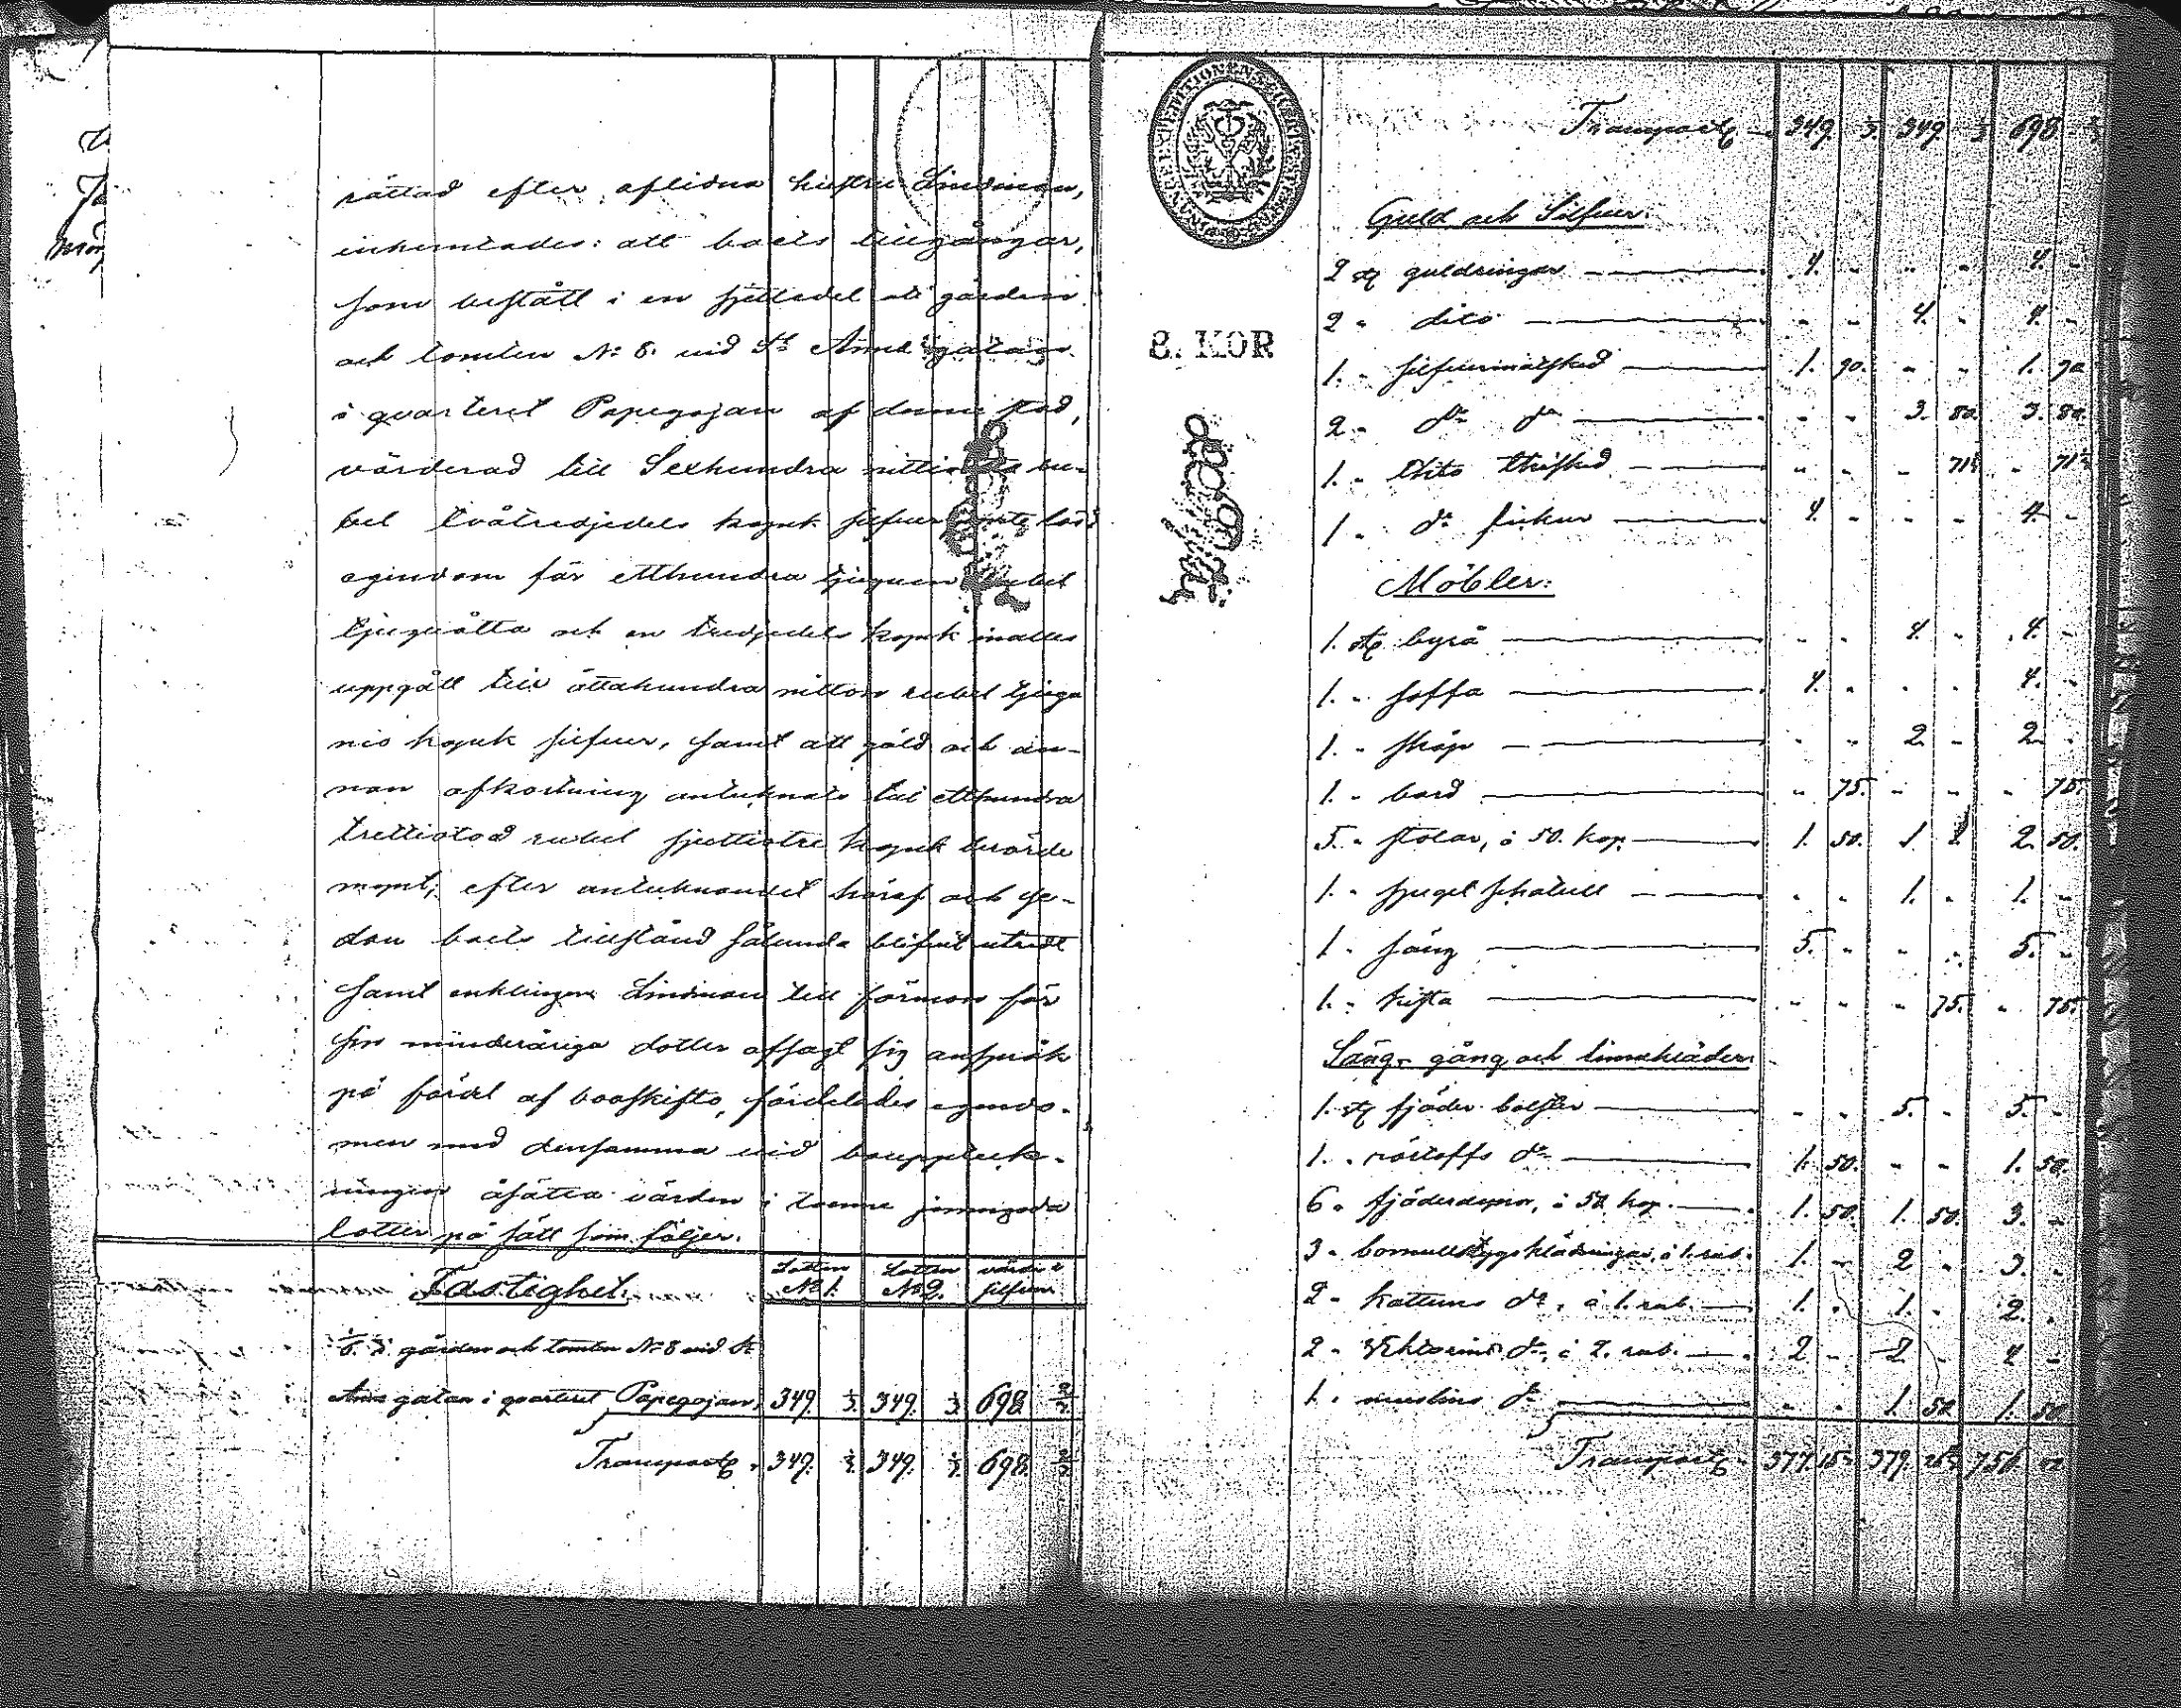 rättad efter aflidna hustru Lindman,
inhemtades: att boets tillgångar,
som bestått i en sjettedel uti gården
och tomten N:o 8. vid S:t Annæ gatan
i qvarteret Papegojan af denna stad,
värderad till Sexhundra nittioåtta ru-
bel tvåtredjedels kopek silfver samt lös
egendom för etthundra tjuguen rubel
tjuguåtta och en tredjedels kopek inalles
uppgått till åttahundra nitton rubel tjugu
nio kopek silfver, samt att gäld och an-
nan afkortning antecknats till etthundra
trettiotvå rubel sjuttiotre kopek berörde
mynt; efter antecknandet häraf och se-
dan boets tillstånd sålunda blifvit utredt
samt enklingen Lindman till förmon för
sin minderåriga dotter afsagt sig anspråk
på fördel af booskifto, fördelades egendo-
men med densamma vid bouppteck-
ningen åsätta värden i tvenne jemngoda
lotter på sätt som följer.
Fastighet.
Lotten N:o 1. Lotten N:o 2. värde i silfver
1/6 i gården och tomten N:o 8 vid S:t
Annæ gatan i qvarteret Papegojan, 349. 1/3. 349. 1/3. 698. 2/3.
Transport, 349. 1/3. 349. 1/3. 698. 2/3.
8. KOP
Transport, 349. 1/3. 349. 1/3. 698. 2/3
Guld och Silfver:
2 st. guldringar 4. - - - 4. -
2 - dito - - 4. - 4. -
1. - silfvermatsked 1. 90. - - 1. 90
2 - d:o d:o - - 3. 80. 3. 80.
1. - dito thésked - - - 71 1/2 - 71 1/2
1 - d:o 4. - - - 4. -
Möbler:
1. st. byrå - - 4. - 4. -
1. - soffa 4. - - - 4. -
1. - skåp - - 2. - 2. -
1. - bord - 75. - - - 75.
5. - stolar, à 50. kop. 1. 50. 1. - 2. 50.
1. - spegel schatull - - 1. - 1. -
1 - säng 5. - - - 5. -
1. - kista - - - 75. - 75.
Säng- gång och linnekläder:
1. st. fjäder bolster - - 5. - 5. -
1. - d:o 1. 50. - - 1. 50.
6 - fjäderdynor, à 50. kop. 1. 50. 1. 50. 3. -
3 - bomullstygs klädningar, à 1. rub. 1. - 2 - 3. -
2 - kattuns d:o, à 1. rub. 1. - 1. - 2. -
2 - d:o, à 2. rub. 2. - 2 - 4 -
1. - muslins d:o - - 1. 50 1. 50
Transport, 377. 379. 756.